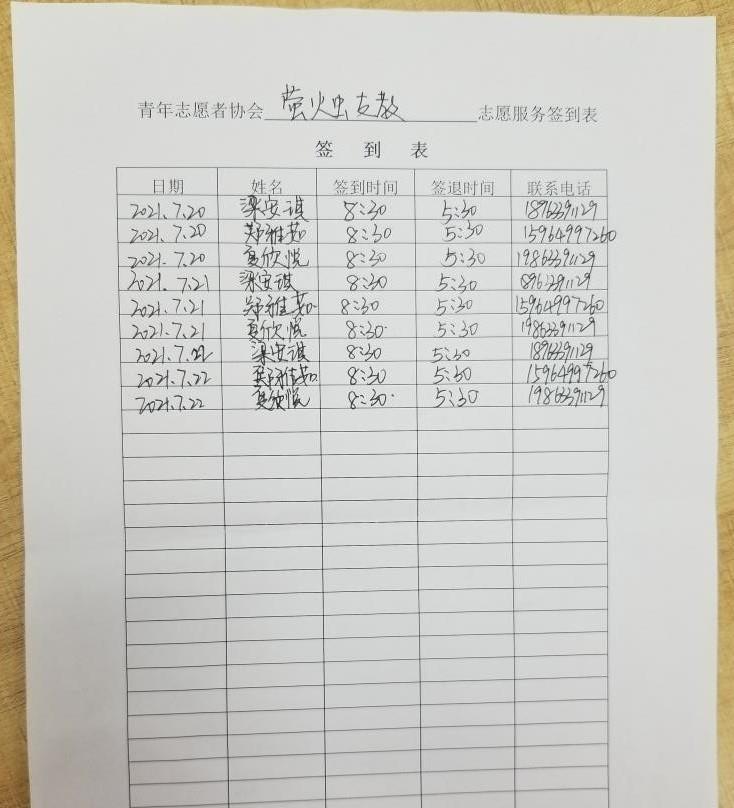 青年志愿者协会 萤火虫支教 志愿服务签到表
签 到 表
日期 姓名 签到时间 签退时间 联系电话
2021.7.20 梁安琪 8:30 5:30 18963391129
2021.7.20 郑雅茹 8:30 5:30 15964997260
2021.7.20 夏欣悦 8:30 5:30 19863391129
2021.7.21 梁安琪 8:30 5:30 8963391129
2021.7.21 郑雅茹 8:30 5:30 15964997260
2021.7.21 夏欣悦 8:30 5:30 19863391129
2021.7.22 梁安琪 8:30 5:30 18963391129
2021.7.22 郑雅茹 8:30 5:30 15964997260
2021.7.22 夏欣悦 8:30 5:30 19863391129